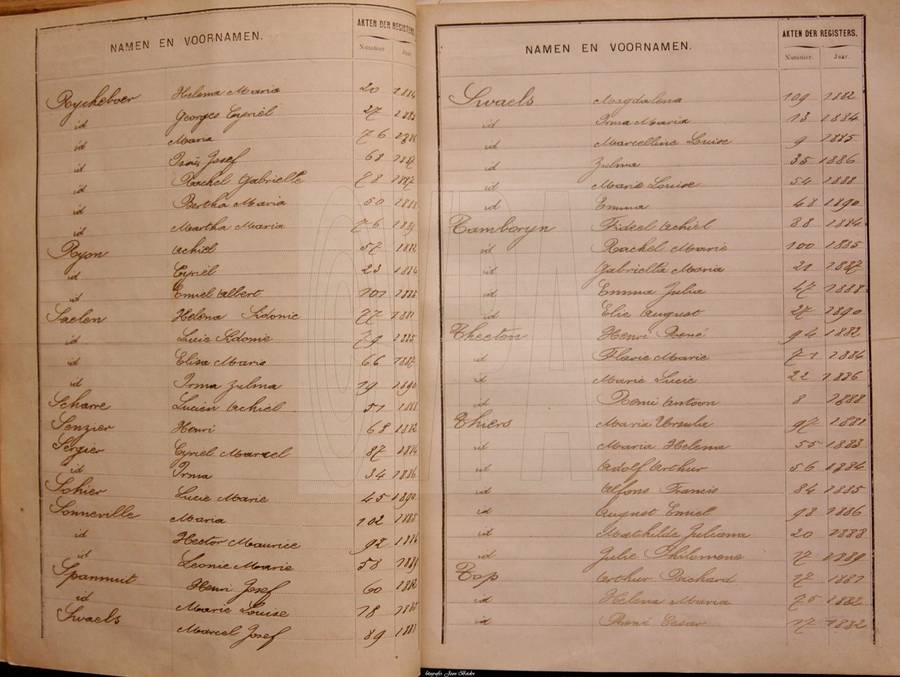 NAMEN EN VOORNAMEN. AKTEN DER REGISTERS
Nummer. Jaar.
Ryckeboer Helena Maria 20
id Georges Cyriel 27
id Maria 76
id Josef 68 1887
id Rachel Gabrielle 78 1887
id Bertha Maria 50 1888
id Martha Maria 76 1889
Ryon Achiel 57 1882
id Cyriel 23 1884
id Emiel Albert 101
Saelen Helena Sidonie 77 1881
id Lucie Sidonie 79 1885
id Elisa Marie 66 1887
id Irma Zulma 19 1890
Scharre Lucien Achiel 51 1888
Senzier Henri 68 1882
Sergier Cyriel Marcel 87 1884
id Irma 34 1886
Sohier Lucie Marie 45 1890
Sonneville Maria 102
id Hector Maurice 92
id Leonie Marie 58 1889
Spanmuit Henri Josef 60 1882
id Marie Louise 18
Swaels Marcel Josef 89 1881
NAMEN EN VOORNAMEN. AKTEN DER REGISTERS.
Nummer. Jaar.
Swaels Magdalena 109 1882
id Irma Maria 13 1884
id Marcelline Louise 9 1885
id Zulma 35 1886
id Marie Louise 54 1888
id Emma 48 1890
Tamboryn Fideel Achiel 88 1884
id Rachel Marie 100 1885
id Gabrielle Maria 21 1887
id Emma Julia 47 1888
id Elie August 27 1890
Theeten Henri René 94 1882
id Flavie Marie 71 1884
id Marie Lucie 22 1886
id Remi Antoon 8 1888
Thiers Maria Ursula 97 1881
id Maria Helena 55 1883
id Adolf Arthur 56 1884
id Alfons Francis 84 1885
id August Emiel 98 1886
id Mathilde Juliana 20 1888
id Julie Philomene 17 1889
Top Arthur Richard 17 1881
id Helena Maria 75 1882
id René Cesar 17 1882